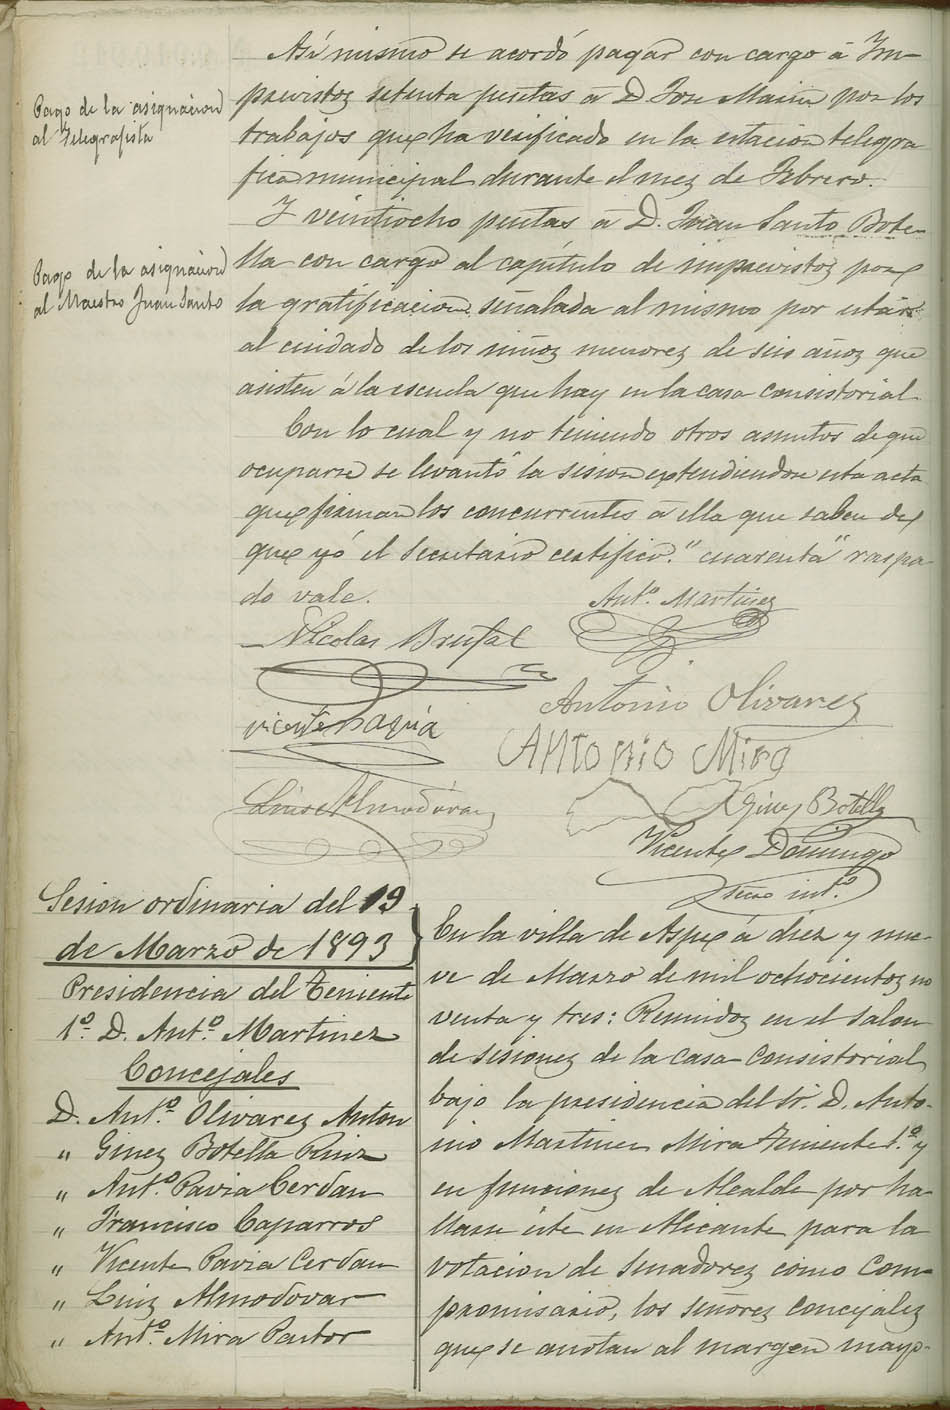 Así mismo se acordó pagar con cargo á Im-
previstos setenta pesetas á D José Maciá por los
trabajos que ha verificado en la estacion telegra
fica municipal durante el mes de Febrero.
Y veintiocho pesetas á D. Juan Santo Bote-
lla con cargo al capítulo de imprevistos por
la gratificacion señalada al mismo por estar
al cuidado de los niños menores de seis años que
asisten á la escuela que hay en la casa consistorial
Pago de la asignacion
al Telegrafista
Pago de la asignacion
al Maestro Juan Santo
Con lo cual y no teniendo otros asuntos de que
ocuparse se levantó la sesion extendiendose esta acta
que firman los concurrentes á ella que saben de
que yó el Secretario certifico. "cuarenta" raspa-
do vale.
Antº. Martinez
Nicolas Brufal
Antonio Olivarez
Vicente Pavia
Antonio Mira
Luis Almodóvar
Gines Botella
Vicente Domingo
Srio intº.
Sesion ordinaria del 19
de Marzo de 1893
Presidencia del Teniente
1º. D. Antº. Martinez
Concejales
D. Antº. Olivarez Anton
" Ginez Botella Ruiz
" Antº. Pavia Cerdan
" Francisco Caparros
" Vicente Pavia Cerdan
" Luiz Almodovar
" Antº. Mira Pastor
En la villa de Aspe á diez y nue-
ve de Marzo de mil ochocientos no
venta y tres: Reunidos en el salon
de sesiones de la casa Consistorial
bajo la presidencia del Sr. D. Anto-
nio Martinez Mira Teniente 1º. y
en funciones de Alcalde por ha
llarse éste en Alicante para la
votacion de Senadores como Com-
promisario, los señores concejales
que se anotan al margen mayo-